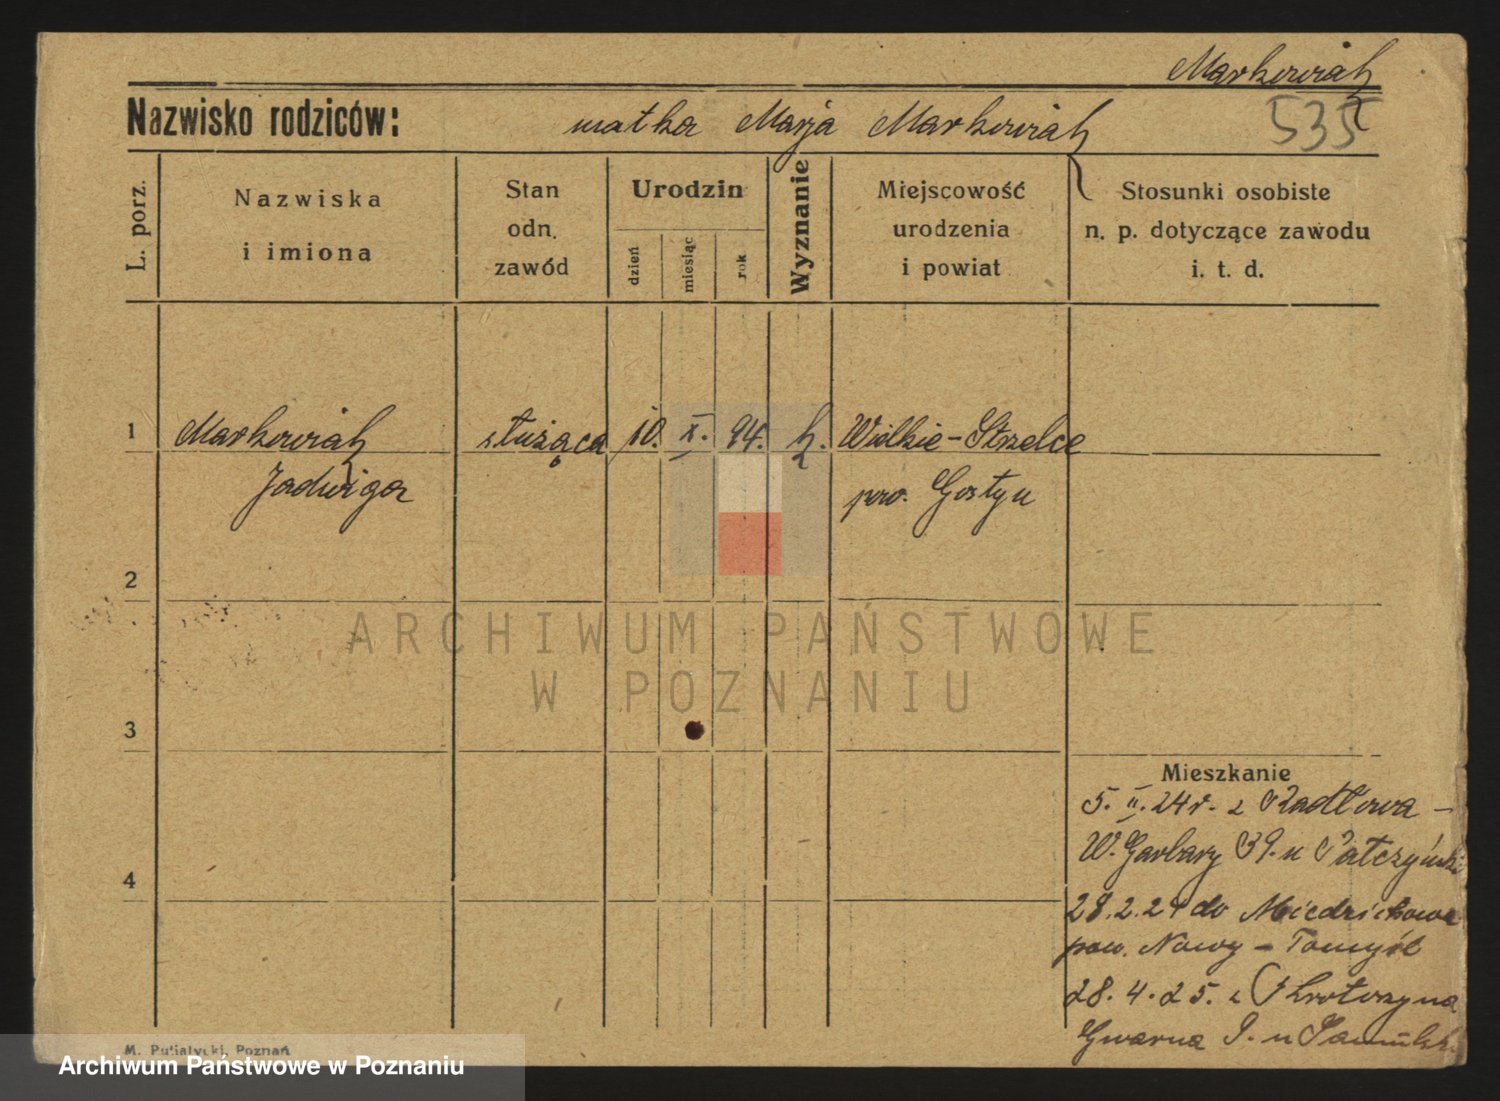 Markowiak
Nazwisko rodziców: matka Marja Markowiak
535
L. porz.
Nazwiska
i imiona
Stan
odn.
zawód
Urodzin
dzień
miesiąc
rok
Wyznanie
Miejscowość
urodzenia
i powiat
Stosunki osobiste
n. p. dotyczące zawodu
i. t. d.
1 Markowiak służąca 10. X. 94. k. Wielkie-Strzelce
Jadwiga pow. Gostyn
2
ARCHIWUM PAŃSTWOWE
W POZNANIU
3
Mieszkanie
5. II. 24 r. z Radłowa -
W. Garbary 39. u
4
28.2.24 do Miedzichowa
pow. Nowy-Tomyśl
28.4.25. z Krotoszyna
Gwarna 9. u
M. Putiatycki, Poznań
Archiwum Państwowe w Poznaniu